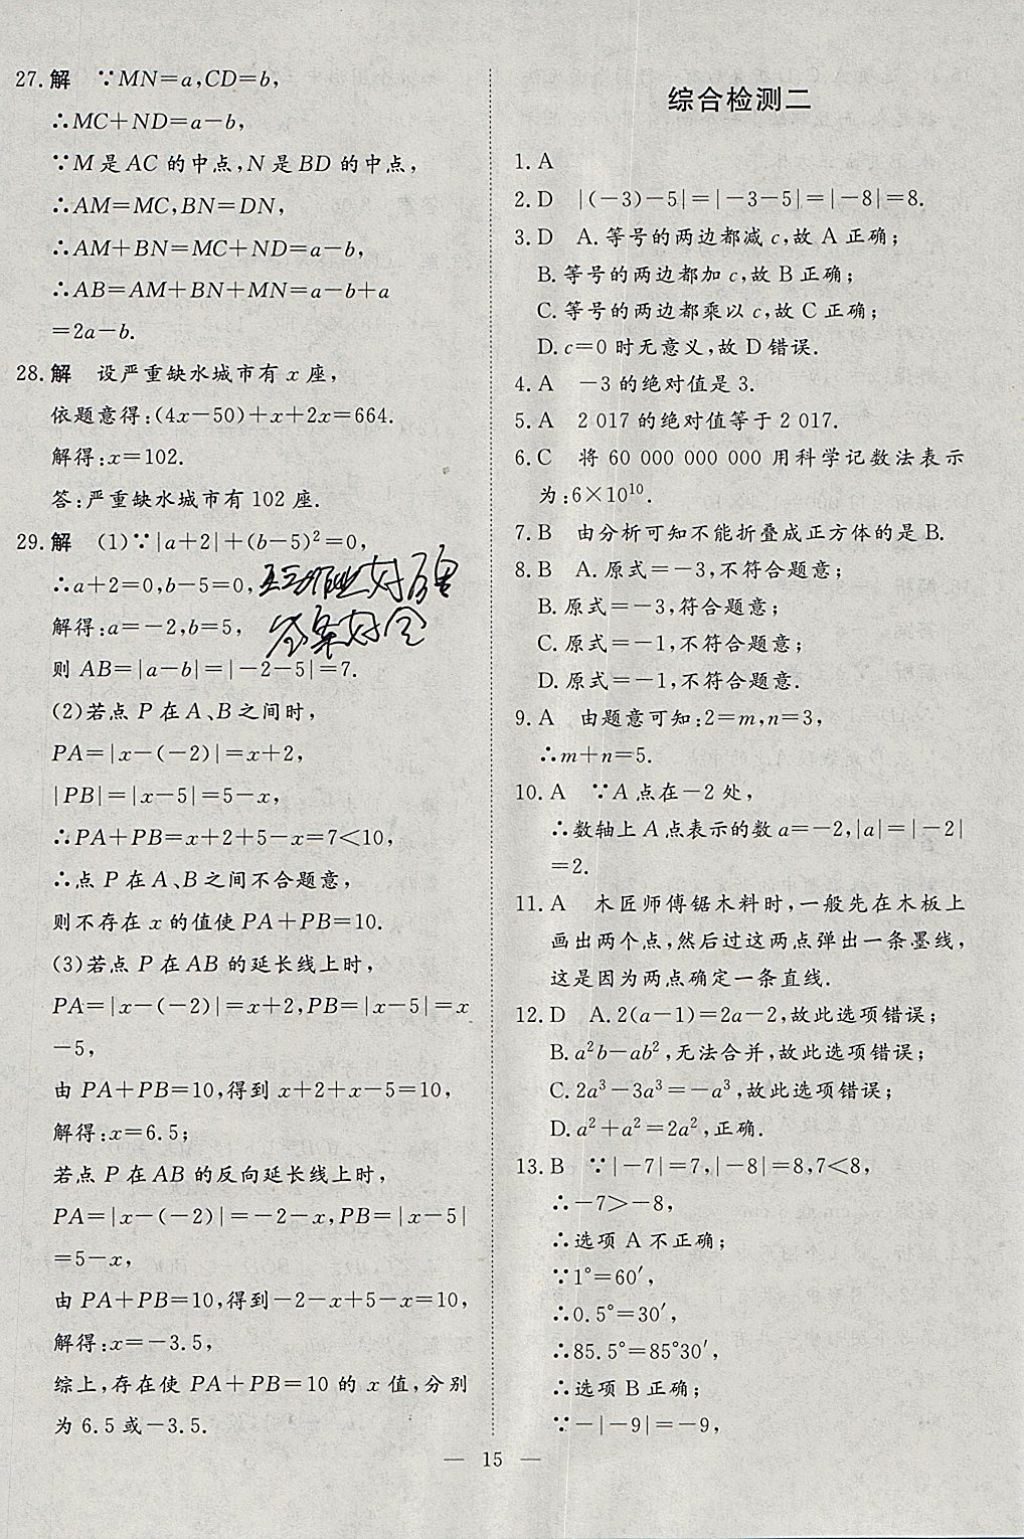 27. 解　∵MN=a,CD=b,
∴MC+ND=a-b,
∵M 是 AC 的中点,N 是 BD 的中点,
∴AM=MC,BN=DN,
∴AM+BN=MC+ND=a-b,
∴AB=AM+BN+MN=a-b+a
=2a-b.
28. 解　设严重缺水城市有 x 座,
依题意得:(4x-50)+x+2x=664.
解得:x=102.
答:严重缺水城市有 102 座.
29. 解　(1)∵|a+2|+(b-5)²=0,
∴a+2=0,b-5=0,
解得:a=-2,b=5,
则 AB=|a-b|=|-2-5|=7.
(2)若点 P 在 A、B 之间时,
PA=|x-(-2)|=x+2,
|PB|=|x-5|=5-x,
∴PA+PB=x+2+5-x=7<10,
∴点 P 在 A、B 之间不合题意,
则不存在 x 的值使 PA+PB=10.
(3)若点 P 在 AB 的延长线上时,
PA=|x-(-2)|=x+2,PB=|x-5|=x
-5,
由 PA+PB=10,得到 x+2+x-5=10,
解得:x=6.5;
若点 P 在 AB 的反向延长线上时,
PA=|x-(-2)|=-2-x,PB=|x-5|
=5-x,
由 PA+PB=10,得到-2-x+5-x=10,
解得:x=-3.5,
综上,存在使 PA+PB=10 的 x 值,分别
为 6.5 或-3.5.
综合检测二
1. A
2. D　|(-3)-5|=|-3-5|=|-8|=8.
3. D　A. 等号的两边都减 c,故 A 正确;
B. 等号的两边都加 c,故 B 正确;
C. 等号的两边都乘以 c,故 C 正确;
D. c=0 时无意义,故 D 错误.
4. A　-3 的绝对值是 3.
5. A　2 017 的绝对值等于 2 017.
6. C　将 60 000 000 000 用科学记数法表示
为:6×10¹⁰.
7. B　由分析可知不能折叠成正方体的是 B.
8. B　A. 原式=-3,不符合题意;
B. 原式=-3,符合题意;
C. 原式=-1,不符合题意;
D. 原式=-1,不符合题意.
9. A　由题意可知:2=m,n=3,
∴m+n=5.
10. A　∵A 点在-2 处,
∴数轴上 A 点表示的数 a=-2,|a|=|-2|
=2.
11. A　木匠师傅锯木料时,一般先在木板上
画出两个点,然后过这两点弹出一条墨线,
这是因为两点确定一条直线.
12. D　A. 2(a-1)=2a-2,故此选项错误;
B. a²b-ab²,无法合并,故此选项错误;
C. 2a³-3a³=-a³,故此选项错误;
D. a²+a²=2a²,正确.
13. B　∵|-7|=7,|-8|=8,7<8,
∴-7>-8,
∴选项 A 不正确;
∵1°=60′,
∴0.5°=30′,
∴85.5°=85°30′,
∴选项 B 正确;
∵-|-9|=-9,
— 15 —